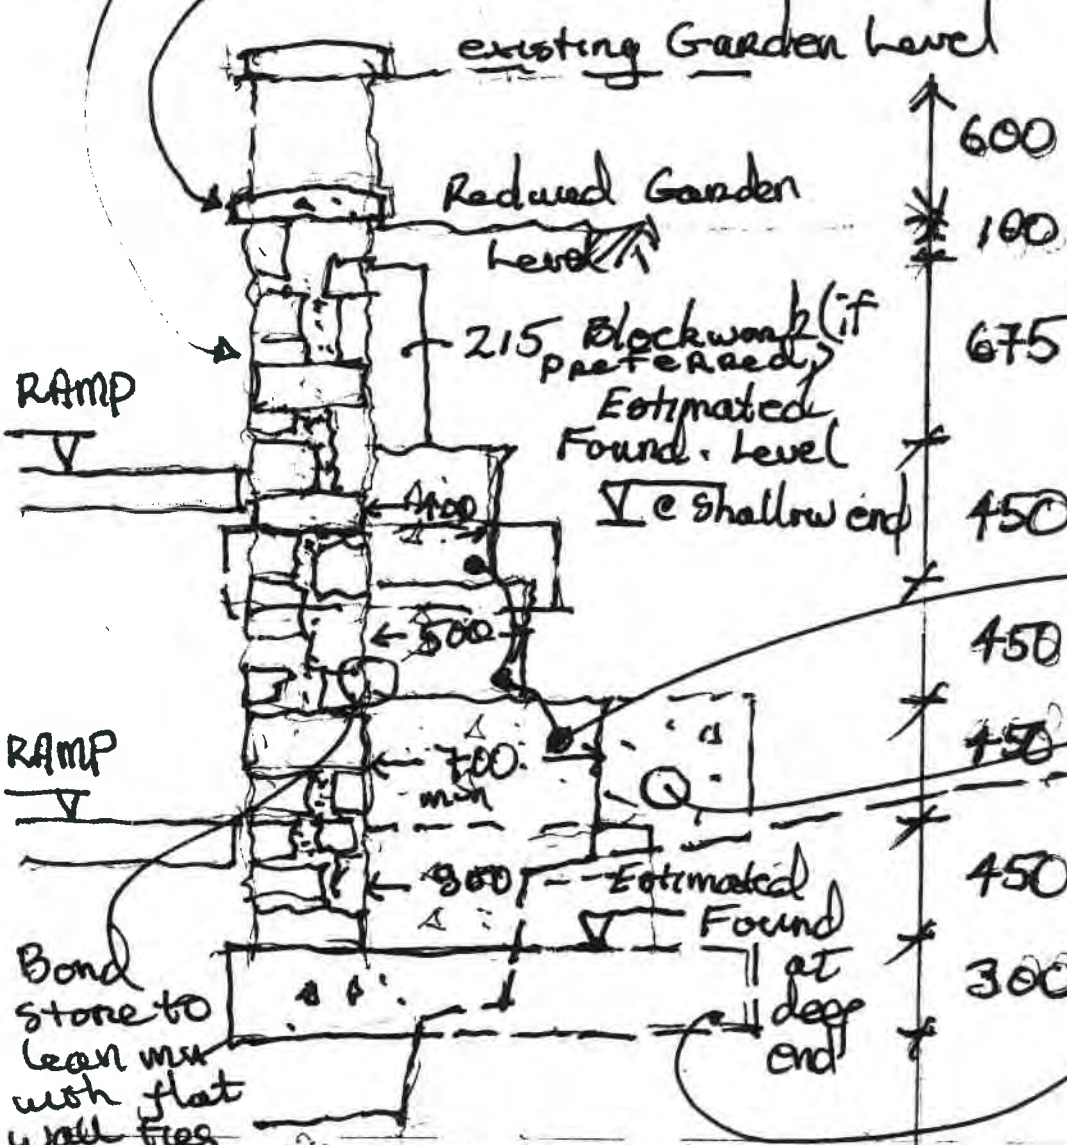 existing Garden Level
600
Reduced Garden
Level
100
215 Blockwork (if
preferred)
675
RAMP
Estimated
Found. Level
@ Shallow end
400
450
500
450
RAMP
700
min
450
Estimated
Found
at
deep
end
450
300
Bond
stone to
lean mix
with flat
wall ties